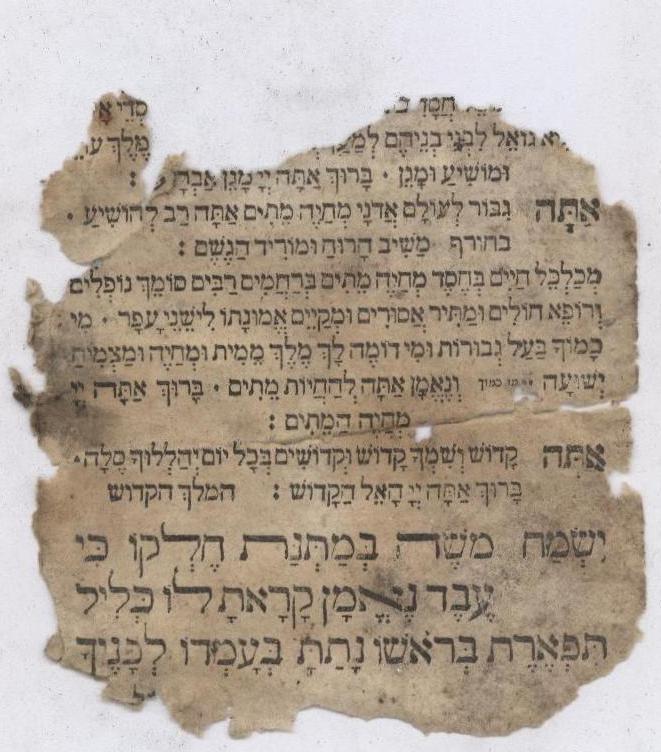 חסד סדי
גואל לבני בניהם מֶלֶךְ
וּמוֹשִׁיעַ וּמָגֵן · בָּרוּךְ אַתָּה יְיָ מָגֵן :
אַתָּה גִבּוֹר לְעוֹלָם אֲדֹנָי מְחַיֶּה מֵתִים אַתָּה רַב לְהוֹשִׁיעַ ·
בחורף מַשִּׁיב הָרוּחַ וּמוֹרִיד הַגֶּשֶׁם :
מְכַלְכֵּל חַיִּים בְּחֶסֶד מְחַיֶּה מֵתִים בְּרַחֲמִים רַבִּים סוֹמֵךְ נוֹפְלִים
וְרוֹפֵא חוֹלִים וּמַתִּיר אֲסוּרִים וּמְקַיֵּים אֱמוּנָתוֹ לִישֵׁנֵי עָפָר · מִי
כָמוֹךָ בַּעַל גְּבוּרוֹת וּמִי דוֹמֶה לָךְ מֶלֶךְ מֵמִית וּמְחַיֶּה וּמַצְמִיחַ
יְשׁוּעָה מי כמוך וְנֶאֱמָן אַתָּה לְהַחֲיוֹת מֵתִים · בָּרוּךְ אַתָּה יְיָ
מְחַיֵּה הַמֵּתִים :
אַתָּה קָדוֹשׁ וְשִׁמְךָ קָדוֹשׁ וּקְדוֹשִׁים בְּכָל יוֹם יְהַלְלוּךָ סֶּלָה ·
בָּרוּךְ אַתָּה יְיָ הָאֵל הַקָּדוֹשׁ : המלך הקדוש
יִשְׂמַח מֹשֶׁה בְּמַתְּנַת חֶלְקוֹ כִּי
עֶבֶד נֶאֱמָן קָרָאתָ לוֹ כְּלִיל
תִּפְאֶרֶת בְּרֹאשׁוֹ נָתַתָּ בְּעָמְדוֹ לְפָנֶיךָ